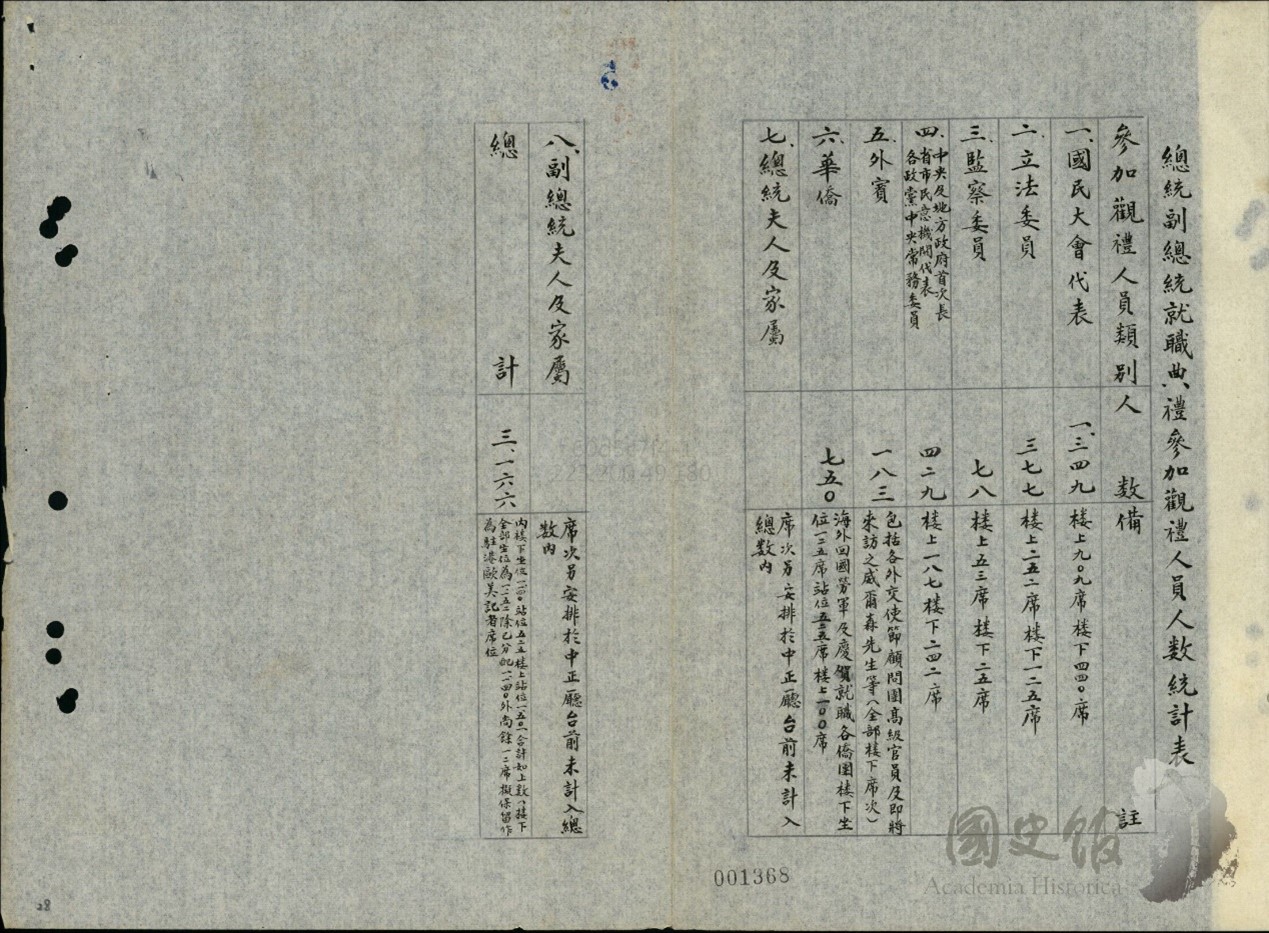 總統副總統就職典禮參加觀禮人員人數統計表
參加觀禮人員類別 人數 備註
一、國民大會代表 一、三四九 楼上九〇九席楼下四四〇席
二、立法委員 三七七 楼上二五二席楼下一二五席
三、監察委員 七八 楼上五三席楼下二五席
四、中央及地方政府首次長
省市民意機関代表
各政黨中央常務委員
四二九 楼上一八七楼下二四二席
五、外賓 一八三 包括各外交使節顧問團高級官員及即將
來訪之威爾森先生等(全部楼下席次)
六、華僑 七五〇 海外回國勞軍及慶賀就職各僑團楼下坐
位一二五席站位五二五席楼上一〇〇席
七、總統夫人及家屬 席次另安排於中正廳台前未計入
總數內
八、副總統夫人及家屬 席次另安排於中正廳台前未計入總
數內
總計 三、一六六 內楼下坐位一一四〇站位五二五楼上站位一五〇一合計如上數(楼下
全部坐位為一一五二除已分配一一四〇外尚餘一二席擬保留作
為駐港歐美記者席位
001368
28
國史館
Academia Historica